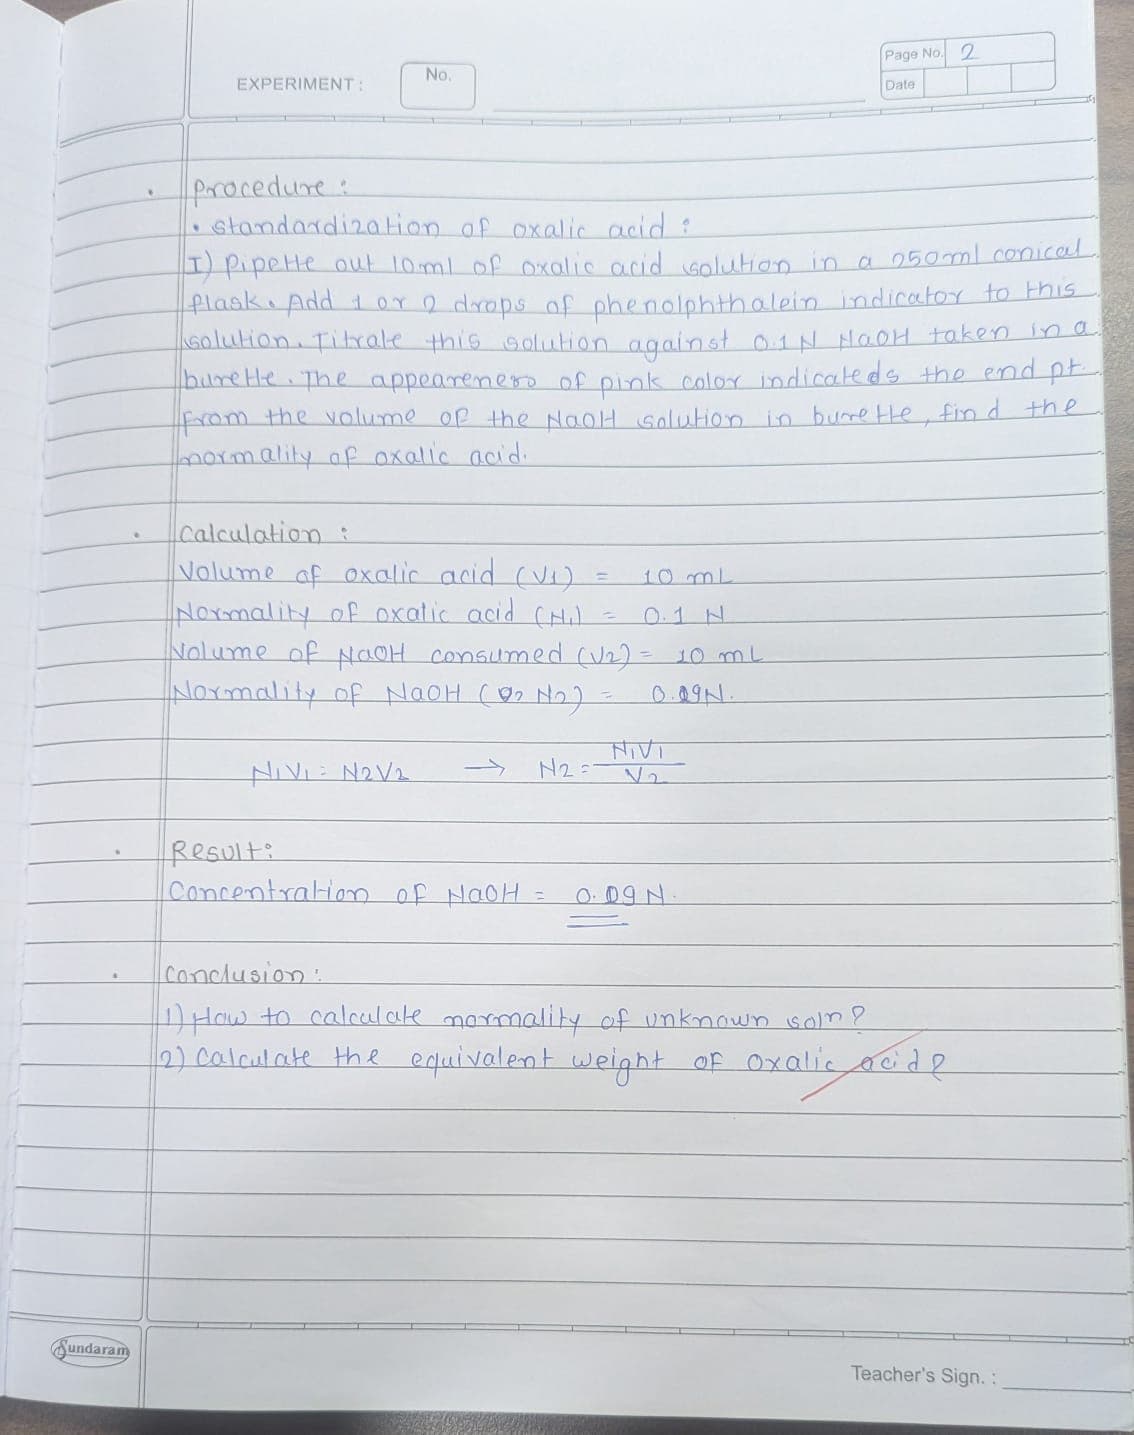 EXPERIMENT :
No.
Page No. 2
Date
Procedure :
• standardization of oxalic acid :
I) Pipette out 10ml of oxalic acid solution in a 250ml conical
flask. Add 1 or 2 drops of phenolphthalein indicator to this
solution. Titrate this solution against 0.1N NaOH taken in a
burette. The of pink color the end pt.
From the volume of the NaOH solution in burette, find the
normality of oxalic acid.
Calculation :
Volume of oxalic acid (V1) = 10 mL
Normality of oxalic acid (N1) = 0.1 N
Volume of NaOH consumed (V2) = 10 mL
Normality of NaOH (N2) = 0.09N.
N1V1 = N2V2 → N2 = N1V1
V2
Result:
Concentration of NaOH = 0.09 N.
Conclusion :
1) How to calculate normality of unknown soln?
2) Calculate the equivalent weight of oxalic acid?
Sundaram
Teacher's Sign. :